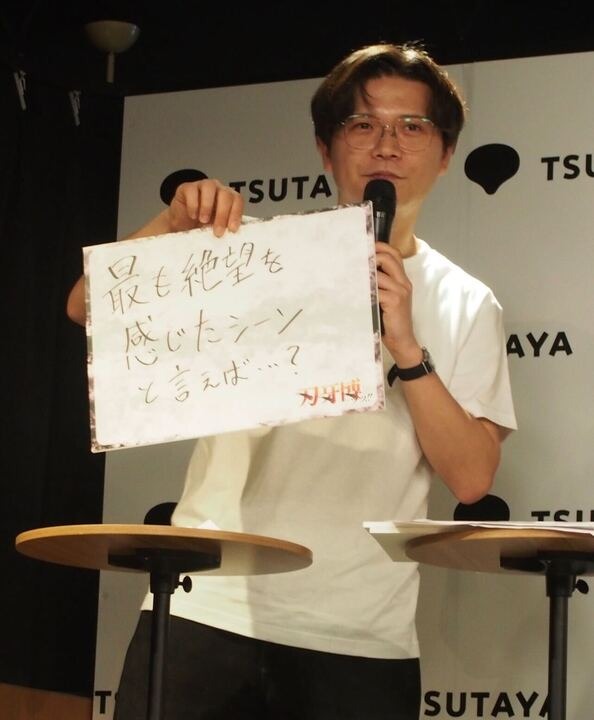 TSUTA
TSU
最も絶望を
感じたシーン
と言えば…?
刃牙博
TAYA
TSUTA
TSU
TSUTAYA